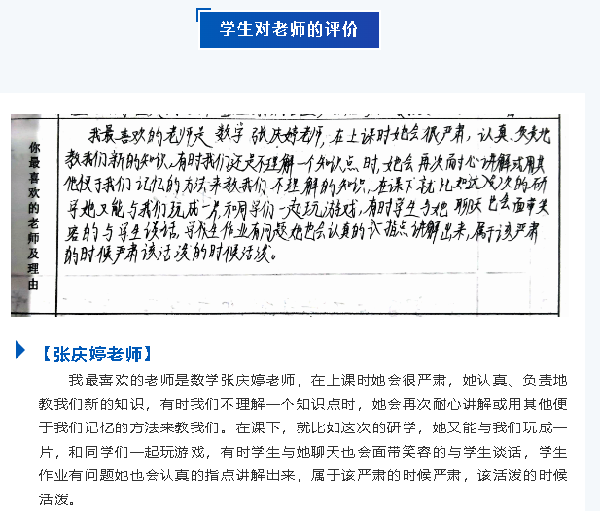 学生对老师的评价
你最喜欢的老师及理由
我最喜欢的老师是 数学 张庆婷老师,在上课时她会很严肃,认真、负责地
教我们新的知识,有时我们还是不理解一个知识点时,她会再次耐心讲解或用其
他便于我们记忆的方法来教我们不理解的知识,在课下就比如这次的研
学她又能与我们玩成一片,和同学们一起玩游戏,有时学生与她聊天也会面带笑
容的与学生谈话,学生作业有问题她也会认真的指点讲解出来,属于该严肃
的时候严肃该活泼的时候活泼。
【张庆婷老师】
我最喜欢的老师是数学张庆婷老师,在上课时她会很严肃,她认真、负责地
教我们新的知识,有时我们不理解一个知识点时,她会再次耐心讲解或用其他便
于我们记忆的方法来教我们。在课下,就比如这次的研学,她又能与我们玩成一
片,和同学们一起玩游戏,有时学生与她聊天也会面带笑容的与学生谈话,学生
作业有问题她也会认真的指点讲解出来,属于该严肃的时候严肃,该活泼的时候
活泼。